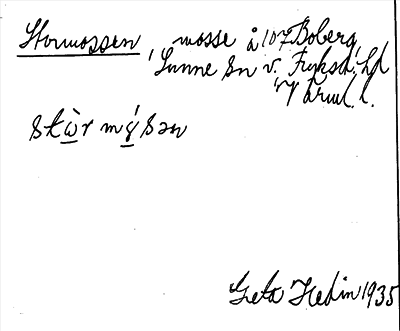 Stormossen, mosse å 107 Boberg,
Sunne sn v. Fryksd. hd
Värml. l.
stὼr mɣ́sən
Greta Hedin 1935